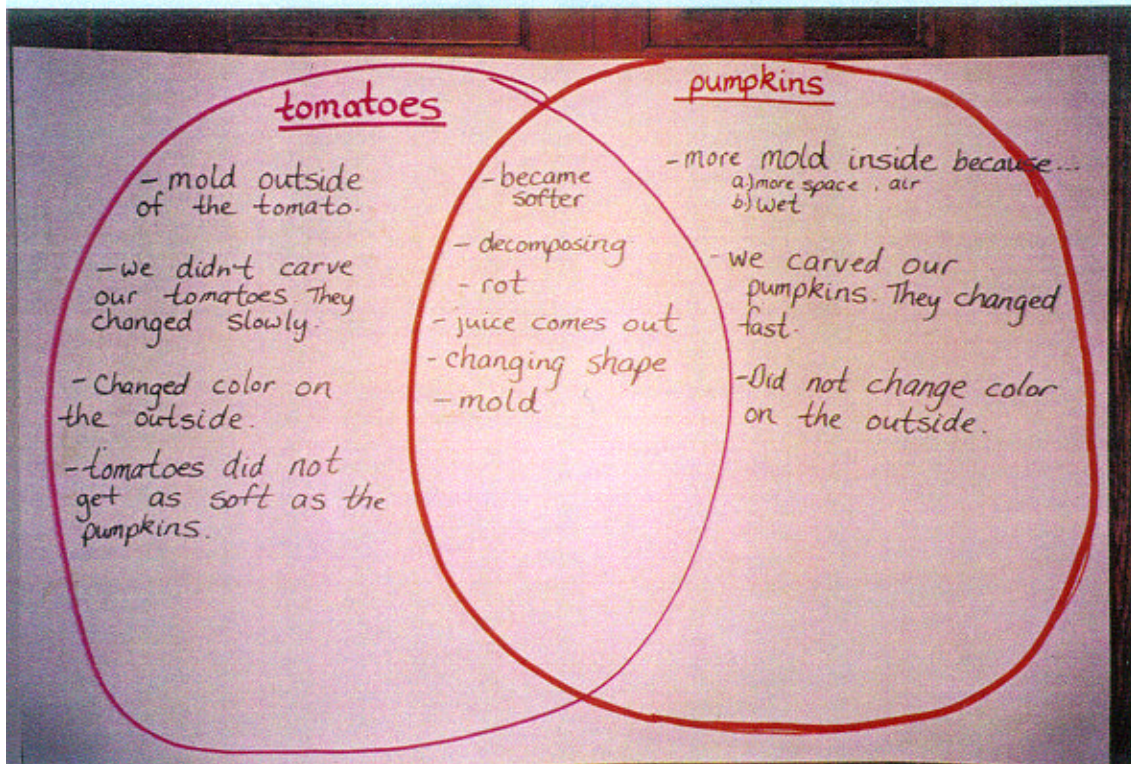 tomatoes
- mold outside
of the tomato.
- we didn't carve
our tomatoes. They
changed slowly.
- Changed color on
the outside.
- tomatoes did not
get as soft as the
pumpkins.
- became
softer
- decomposing
- rot
- juice comes out
- changing shape
- mold
pumpkins
- more mold inside because...
a) more space, air
b) wet
- we carved our
pumpkins. They changed
fast.
- Did not change color
on the outside.